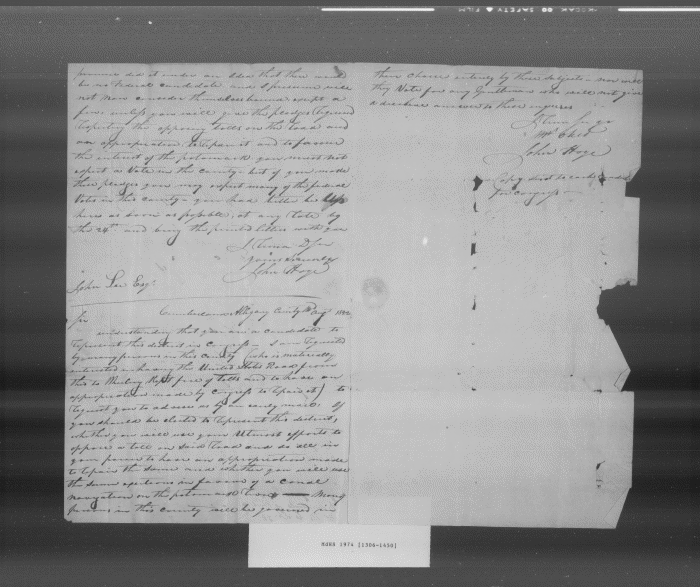 persons did it under an Idea that there would
be no Federal candidate and I presume will
not now consider themselves bound except a
few unless you will give the pledges required
respecting the opposing tolls on the road and
an appropriation to repair it and to favour
the interest of the potomack you must not
expect a Vote in this county but if you make
these pledges you may expect many of the federal
Votes in this county you had better be up
here as soon as possible, at any rate by
the 24th and bring the printed letters with you
I am D Sir
yours sincerely
John Hoye
John Lee Esqr.
Cumberland Allegany County Augt 1822
Sir
understanding that you are a candidate to
represent this district in Congress I am requested
by many persons in this County (who is materially
interested in having the United States Road from
this to Wheeling kept free of tolls and to have an
appropriation made by Congress to repair it) to
request you to address us by an early mail: If
you should be elected to represent this district,
whether you will use your Utmost efforts to
oppose a toll on said road and do all in
your power to have an appropriation made
to repair the same and whether you will use
the same exertions in favour of a canal
navigation on the potomack River — Many
persons in this county will be governed in
their choice entirely by these subjects nor will
they Vote for any Gentleman who will not give
a decisive answer to these inquiries
John Hoye
Copy sent to each
for Congress
KODAK SAFETY FILM
MSRS 1974 [1394-1450]